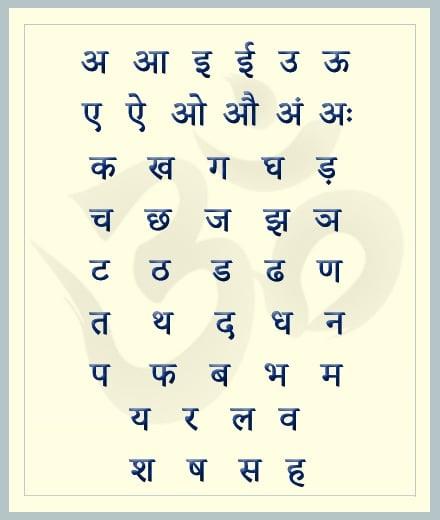 अ आ इ ई उ ऊ
ए ऐ ओ औ अं अः
क ख ग घ ड़
च छ ज झ ञ
ट ठ ड ढ ण
त थ द ध न
प फ ब भ म
य र ल व
श ष स ह
ॐ